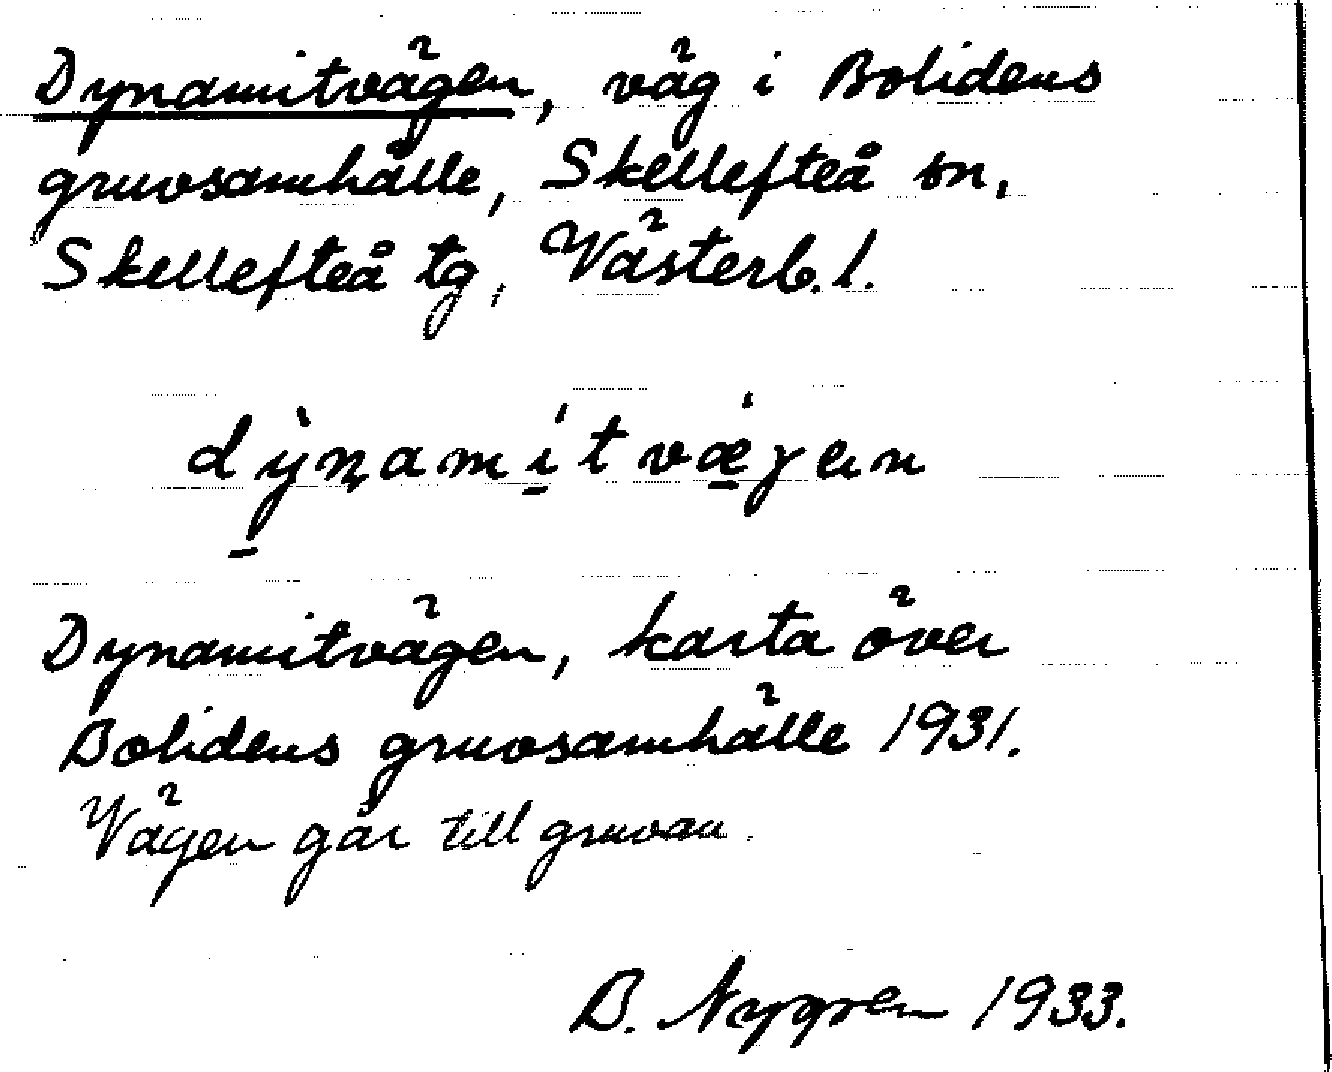 Dynamitvägen, väg i Bolidens
gruvsamhälle, Skellefteå sn,
Skellefteå tg, Västerb. l.
Dynamitvägen, karta över
Bolidens gruvsamhälle 1931.
Vägen går till gruvan.
B. Nygren 1933.